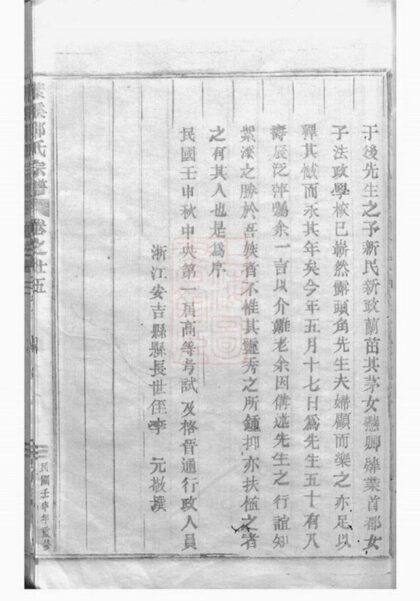 于後先生之子新民新政前苗其茅女燕卿肄業首都女
子法政學校已嶄然露頭角先生夫婦顧而樂之亦足以
釋其憾而永其年矣今年五月十七日為先生五十有八
壽辰泛萍屬余一言以介離老余因備述先生之行誼知
紫溪之勝於吾族者不惟其靈秀之所鍾抑亦扶植之者
之有其人也是為序
民國壬申秋中央第一屆高等考試及格晉通行政人員
浙江安吉縣縣長世侄李元敬撰
氏宗譜
卷之廿五
民國壬申年重修